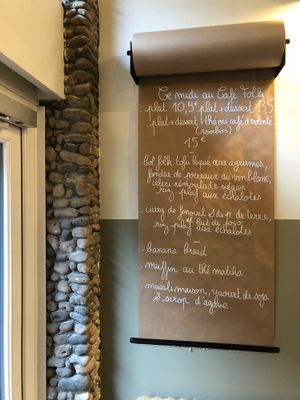 Ce midi au Café Folk
- plat 10,5€ plat + dessert 13,5
plat + dessert + thé ou café à volonté
(rooibos)
15€
- bol folk tofu laqué aux agrumes,
fondue de poireaux au vin blanc,
céleri rémoulade vegan
riz pilaf aux échalotes
- curry de fenouil & pdop de terre,
et lait de coco
riz pilaf aux échalotes
- banana bread
- muffin au thé matcha
- muesli maison, yaourt de soja
& sirop d'agave.